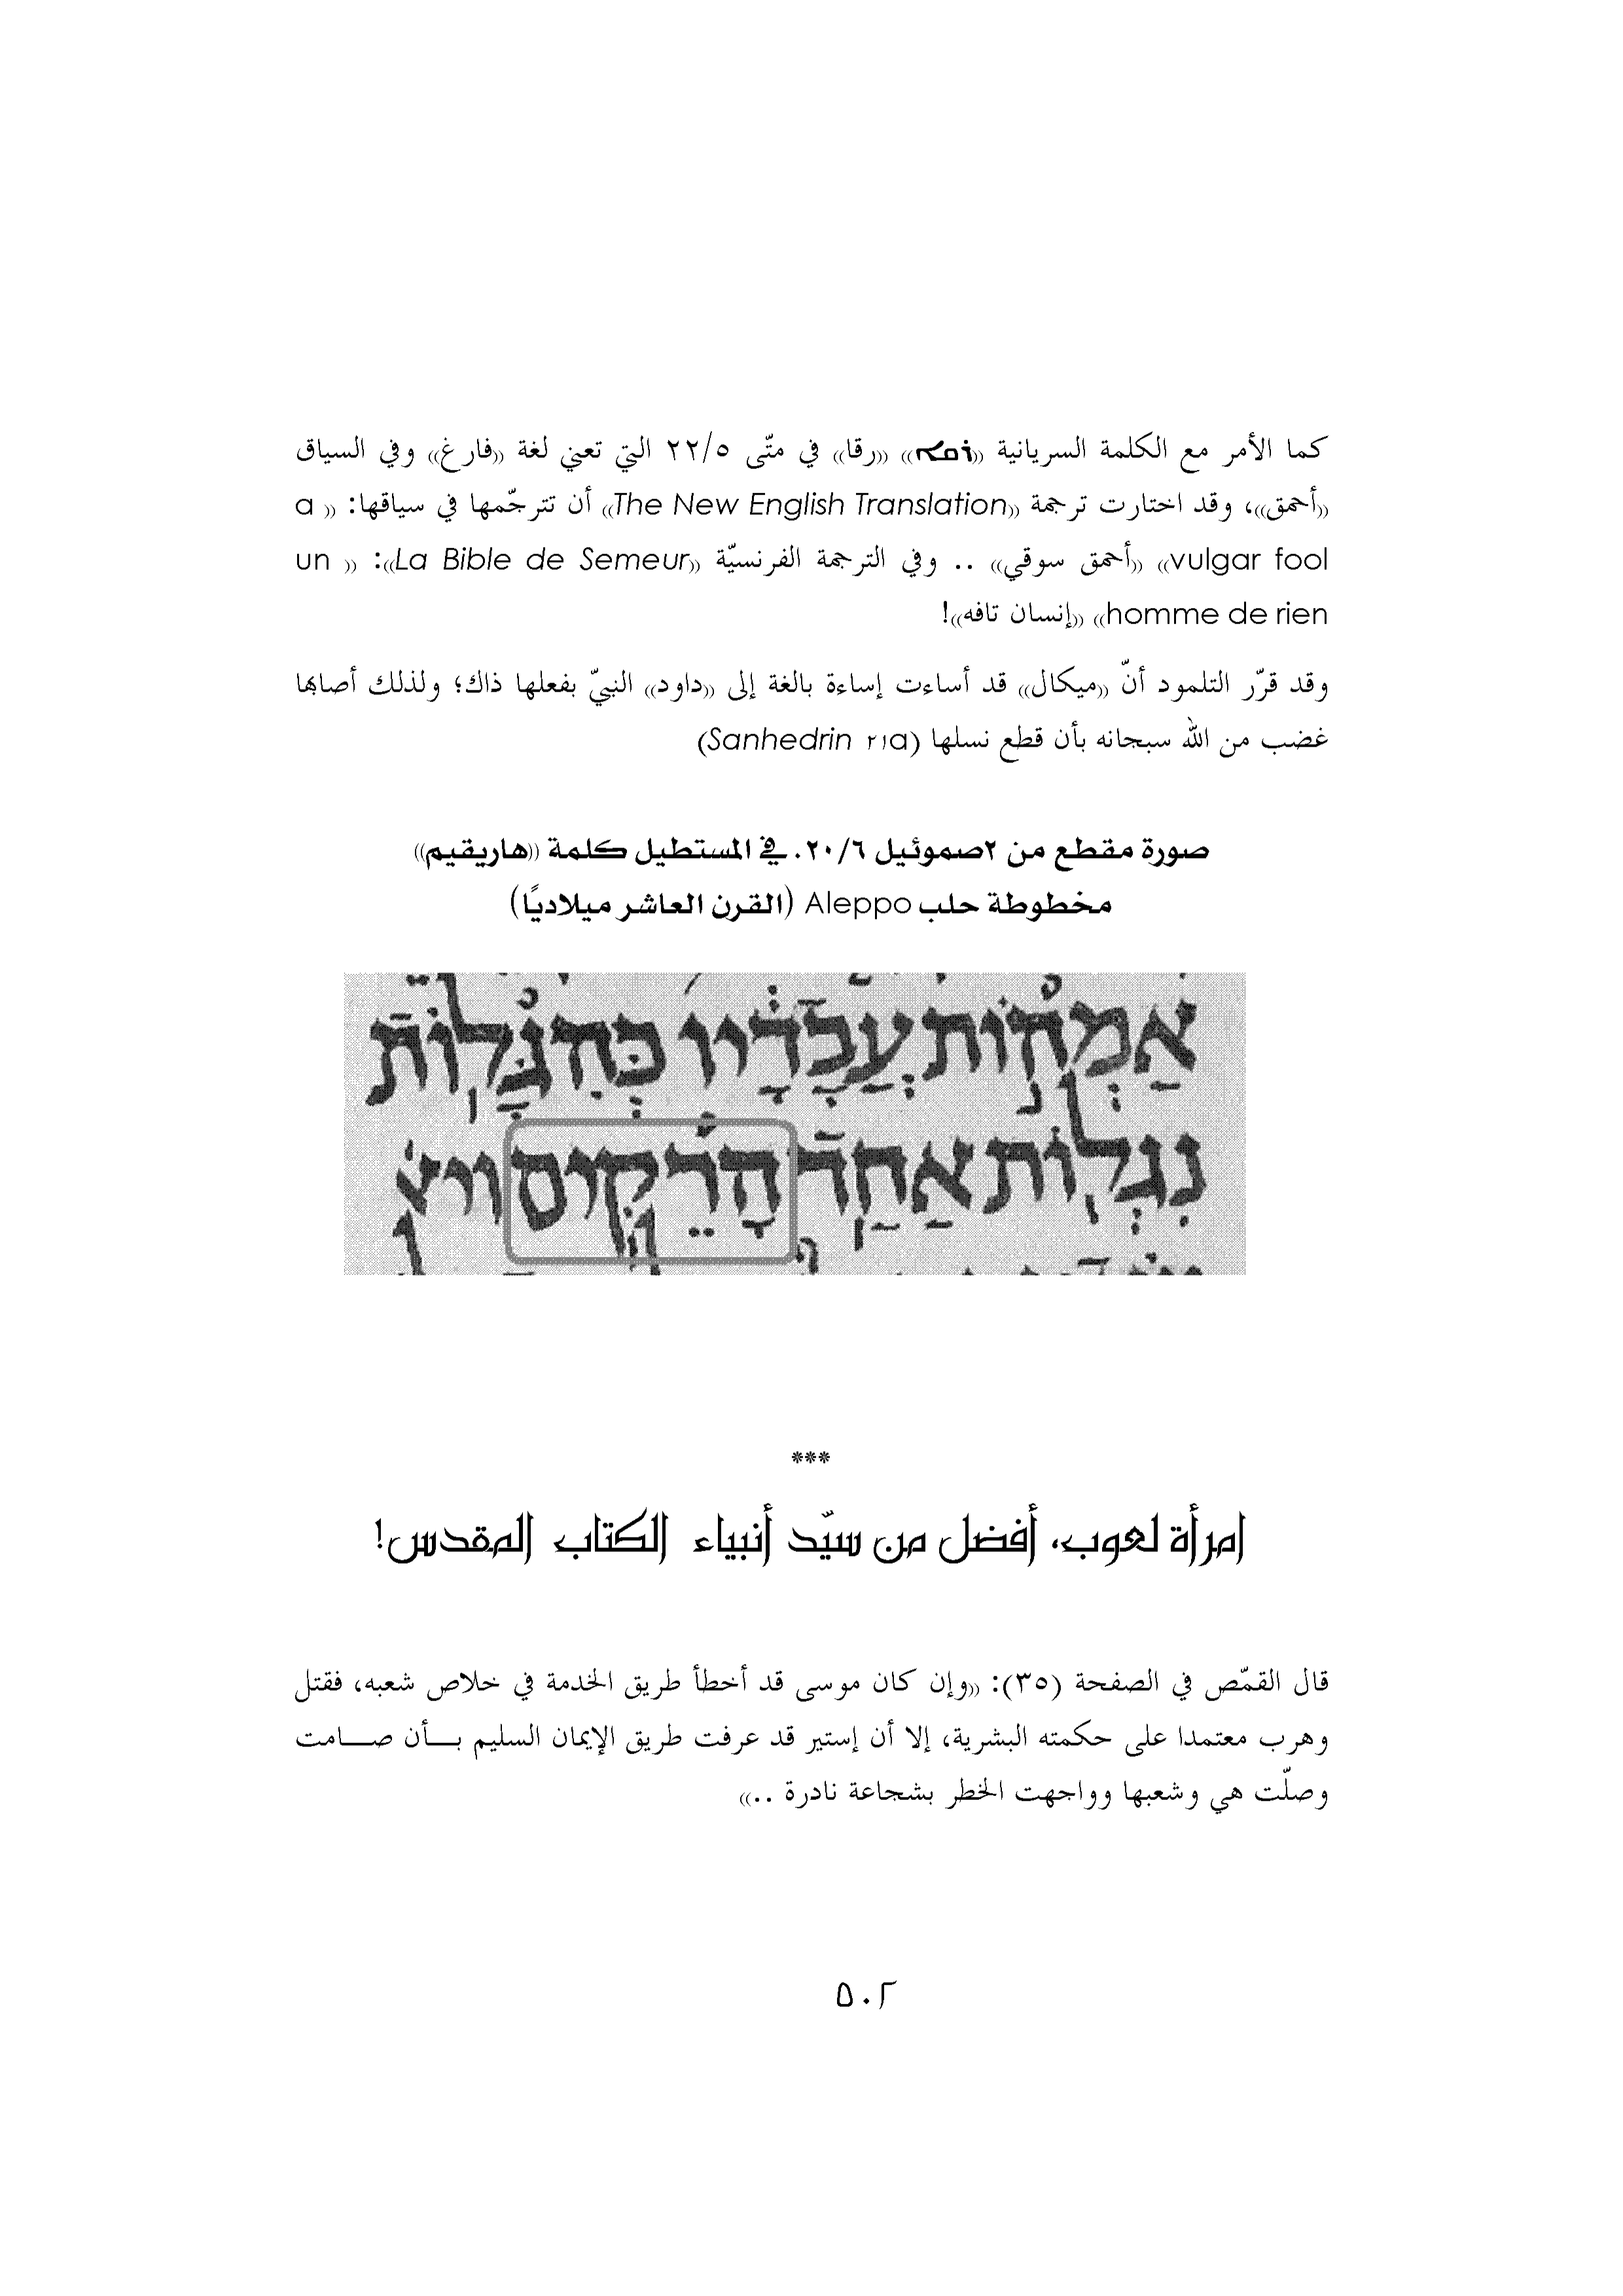 كما الأمر مع الكلمة السريانية «ܪܩܐ» «رقا» في متّى ٢٢/٥ التي تعني لغة «فارغ» وفي السياق
«أحمق»، وقد اختارت ترجمة «The New English Translation» أن تترجّمها في سياقها: « a
vulgar fool» «أحمق سوقي» .. وفي الترجمة الفرنسيّة «La Bible de Semeur»: « un
homme de rien» «إنسان تافه»!
وقد قرّر التلمود أنّ «ميكال» قد أساءت إساءة بالغة إلى «داود» النبيّ بفعلها ذاك؛ ولذلك أصابها
غضب من الله سبحانه بأن قطع نسلها (Sanhedrin ٢١a)
صورة مقطع من ٢صموئيل ٢٠/٦. في المستطيل كلمة «هاريقيم»
مخطوطة حلب Aleppo (القرن العاشر ميلاديًا)
אַמְהוֹת עֲבָדָיו כְּהִגָּלוֹת
נִגְלוֹת אַחַד הָרֵקִים ויצ
***
امرأة لعوب، أفضل من سيّد أنبياء الكتاب المقدس!
قال القمّص في الصفحة (٣٥): «وإن كان موسى قد أخطأ طريق الخدمة في خلاص شعبه، فقتل
وهرب معتمدا على حكمته البشرية، إلا أن إستير قد عرفت طريق الإيمان السليم بـــأن صـــامت
وصلّت هي وشعبها وواجهت الخطر بشجاعة نادرة ..»
٥٠٢